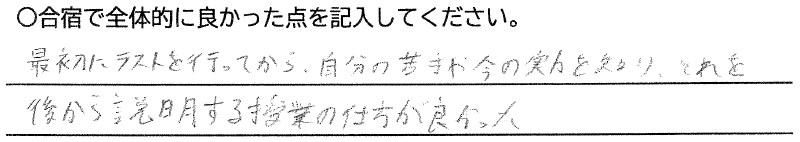 〇合宿で全体的に良かった点を記入してください。
最初にテストを行ってから、自分の苦手や今の実力を知り、それを
後から説明する授業の仕方が良かった